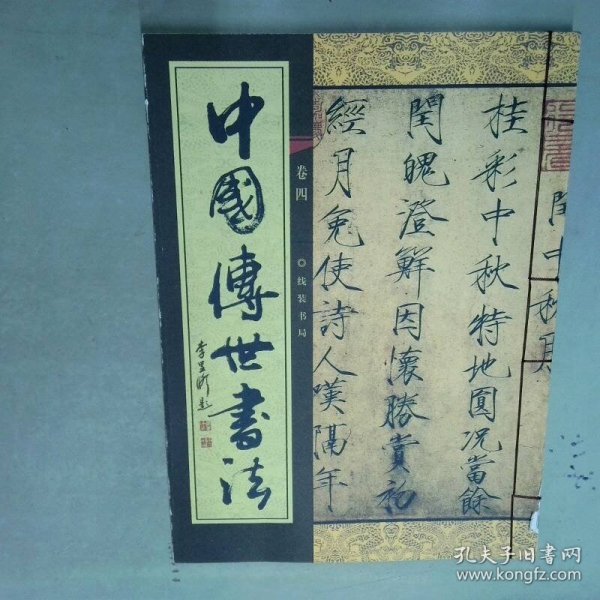 中國傳世書法
卷四
◎线装书局
閏中秋月
桂彩中秋特地圓況當餘
閏魄澄鮮因懷勝賞初
經月免使詩人嘆隔年
孔夫子旧书网
www.kongfz.com